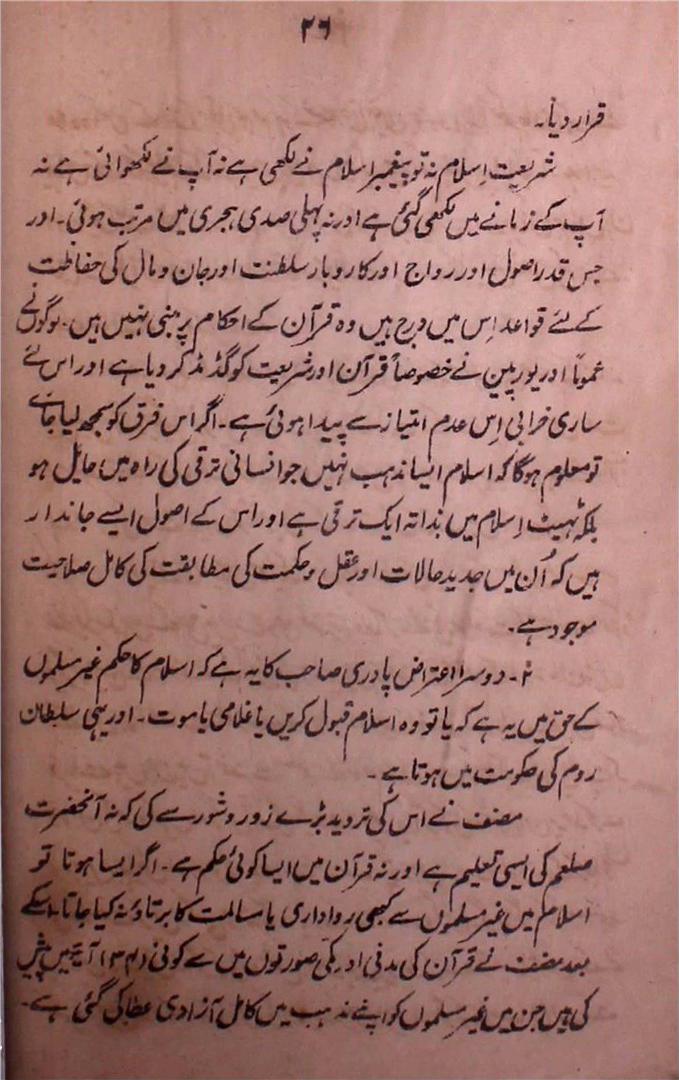 ۲۶
قرار دیا۔
شریعتِ اسلام نہ تو پیغمبر اسلام نے لکھی ہے نہ آپ نے لکھوائی ہے نہ
آپ کے زمانے میں لکھی گئی ہے اور نہ پہلی صدی ہجری میں مرتب ہوئی۔ اور
جس قدر اصول اور رواج اور کاروبار سلطنت اور جان و مال کی حفاظت
کے لئے قواعد اِس میں درج ہیں وہ قرآن کے احکام پر مبنی نہیں ہیں۔ لوگوں نے
عموماً اور یورپین نے خصوصاً قرآن اور شریعت کو گڈ مڈ کر دیا ہے اور اس لئے
ساری خرابی اِس عدم امتیاز سے پیدا ہوئی ہے۔ اگر اس فرق کو سمجھ لیا جائے
تو معلوم ہوگا کہ اسلام ایسا مذہب نہیں جو انسانی ترقی کی راہ میں حایل ہو
بلکہ ٹہیٹ اِسلام میں بذاتہ ایک ترقی ہے اور اس کے اصول ایسے جاندار
ہیں کہ اُن میں جدید حالات اور عقل و حکمت کی مطابقت کی کامل صلاحیت
موجود ہے۔
۲۔ دوسرا اعتراض پادری صاحب کا یہ ہے کہ اسلام کا حکم غیر مسلموں
کے حق میں یہ ہے کہ یا تو وہ اسلام قبول کریں یا غلامی یا موت۔ اور یہی سلطان
روم کی حکومت میں ہوتا ہے۔
مصنف نے اس کی تردید بڑے زور و شور سے کی کہ نہ آنحضرت
صلعم کی ایسی تعلیم ہے اور نہ قرآن میں ایسا کوئی حکم ہے۔ اگر ایسا ہوتا تو
اسلام میں غیر مسلموں سے کبھی رواداری یا مسالمت کا برتاؤ نہ کیا جاتا۔ اسکے
بعد مصنف نے قرآن کی مدنی اور مکّی صورتوں میں سے کوئی آیتیں پیش
کی ہیں جن میں غیر مسلموں کو اپنے مذہب میں کامل آزادی عطا کی گئی ہے۔